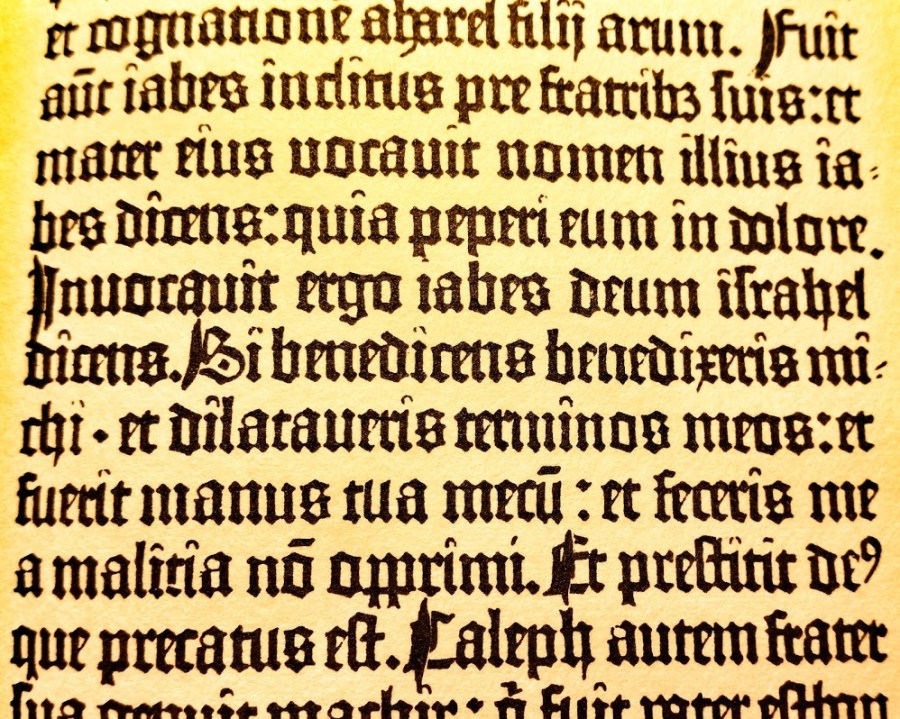 et cognatione aharel filij arum. Fuit
aūt iabes inclitus pre fratribꝫ suis: et
mater eius vocauit nomen illius ia-
bes dicens: quia peperi eum in dolore.
Inuocauit ergo iabes deum israhel
dicens. Si benedicens benedixeris mi-
chi · et dilataueris terminos meos: et
fuerit manus tua mecū: et feceris me
a malitia nō opprimi. Et prestitit deꝰ
que precatus est. Caleph autem frater
sua genuit machir: q̄ fuit pater esthon